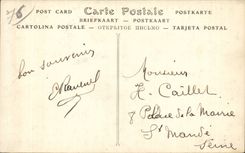 76
POST CARD Carte Postale POSTKARTE
BRIEFKAART — POSTKAART
CARTOLINA POSTALE — ОТКРЫТОЕ ПИСЬМО — TARJETA POSTAL
bon souvenir
Monsieur
H. Caillet
8 Place de la Mairie
St Mandé
Seine